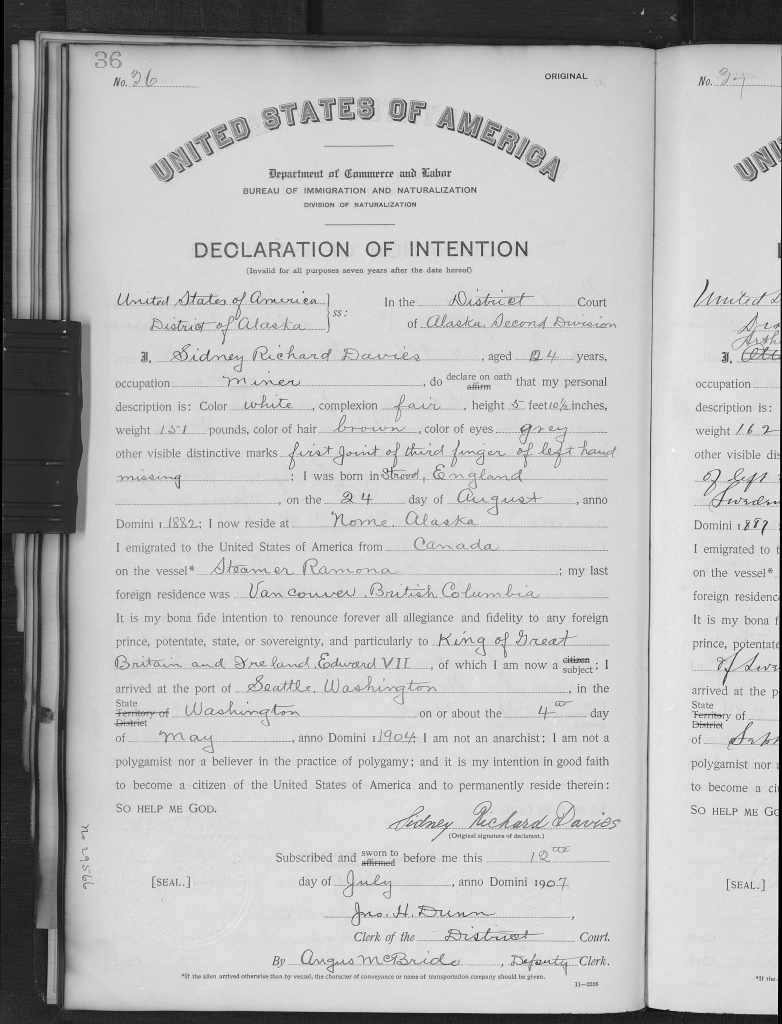 36
No. 36 ORIGINAL
UNITED STATES OF AMERICA
Department of Commerce and Labor
BUREAU OF IMMIGRATION AND NATURALIZATION
DIVISION OF NATURALIZATION
DECLARATION OF INTENTION
(Invalid for all purposes seven years after the date hereof)
United States of America } ss: In the District Court
District of Alaska of Alaska, Second Division
I, Sidney Richard Davies, aged 24 years,
occupation Miner, do declare on oath affirm that my personal
description is: Color white, complexion fair, height 5 feet 10½ inches,
weight 151 pounds, color of hair brown, color of eyes grey
other visible distinctive marks first joint of third finger of left hand
missing; I was born in Strood, England
, on the 24 day of August, anno
Domini 1882; I now reside at Nome, Alaska
I emigrated to the United States of America from Canada
on the vessel* Steamer Ramona; my last
foreign residence was Vancouver, British Columbia
It is my bona fide intention to renounce forever all allegiance and fidelity to any foreign
prince, potentate, state, or sovereignty, and particularly to King of Great
Britain and Ireland, Edward VII, of which I am now a citizen subject; I
arrived at the port of Seattle, Washington, in the
State Territory of District Washington on or about the 4th day
of May, anno Domini 1904; I am not an anarchist; I am not a
polygamist nor a believer in the practice of polygamy; and it is my intention in good faith
to become a citizen of the United States of America and to permanently reside therein:
SO HELP ME GOD.
Sidney Richard Davies
(Original signature of declarant.)
Subscribed and sworn to affirmed before me this 12th
[SEAL.] day of July, anno Domini 1907
Jno. H. Dunn,
Clerk of the District Court.
By Angus McBride, Deputy Clerk.
*If the alien arrived otherwise than by vessel, the character of conveyance or name of transportation company should be given.
11—2326
No. 37
UNITED
United
I,
occupation
description is:
weight 162
other visible dis
of left
Sweden
Domini 1889
I emigrated to t
on the vessel*
foreign residence
It is my bona f
prince, potentate
of Swe
arrived at the p
State Territory of District
of Sept
polygamist nor a
to become a ci
SO HELP ME GO
[SEAL.]
*If the